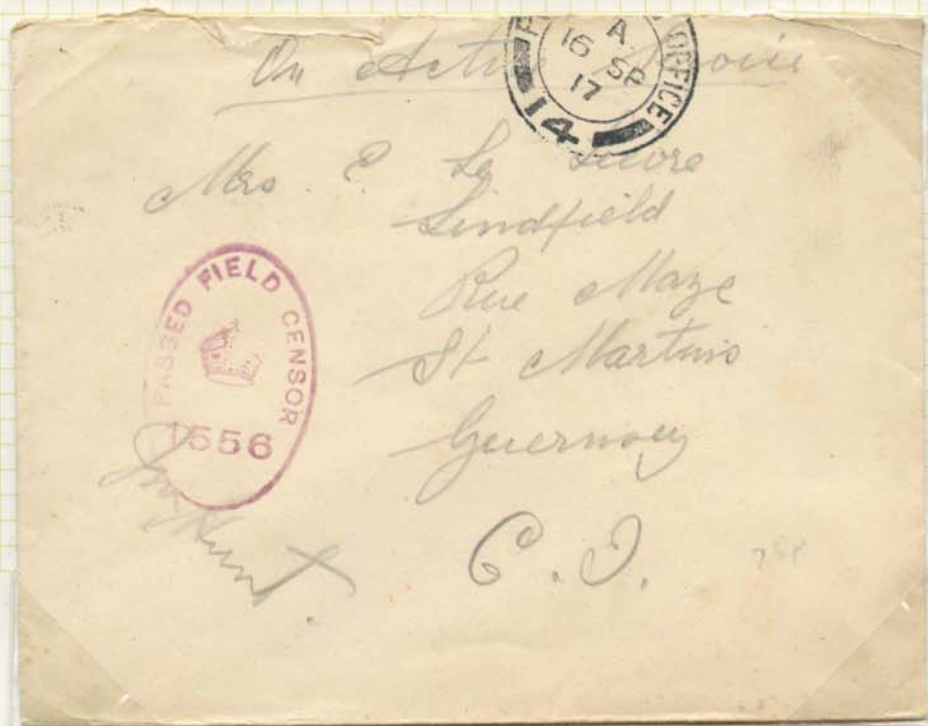 On Active Service
A
16 SP
17
OFFICE
14
Mrs. E. Le
Lindfield
Rue Maze
St Martins
Guernsey
C.I.
PASSED FIELD CENSOR
1556